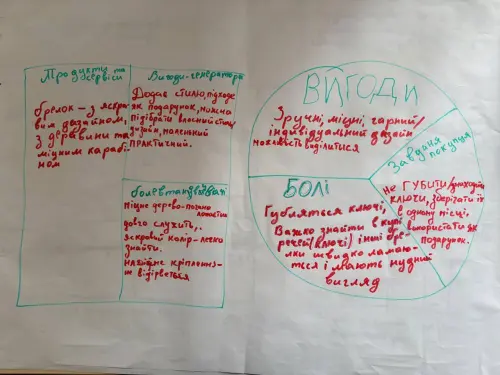 Продукти та
сервіси
брелок – з яскра
вим дизайном,
з деревини та
міцним карабі-
ном
Вигоди-генератори
Додає стилю, підходе
як подарунок, можно
підібрати власний стиль/
дизайн, маленький
ПРАКТИЧНИЙ.
Міцне дерево-
довго служить,
яскравий колір-легко
знайти.
надійне кріплення-
не відірветься
ВИГОДИ
Зручні, міцні, гарний/
індивідуальний дизайн
можливість виділитися
Завдання
покупця
Не ГУБИТИ/знаходити
ключи, зберігати їх
в одному місці,
використати як
подарунок.
БОЛІ
Губляться ключі,
Важко знайти в
речей(ключі) інші бре-
лки швидко ламаю-
ться і мають нудний
вигляд